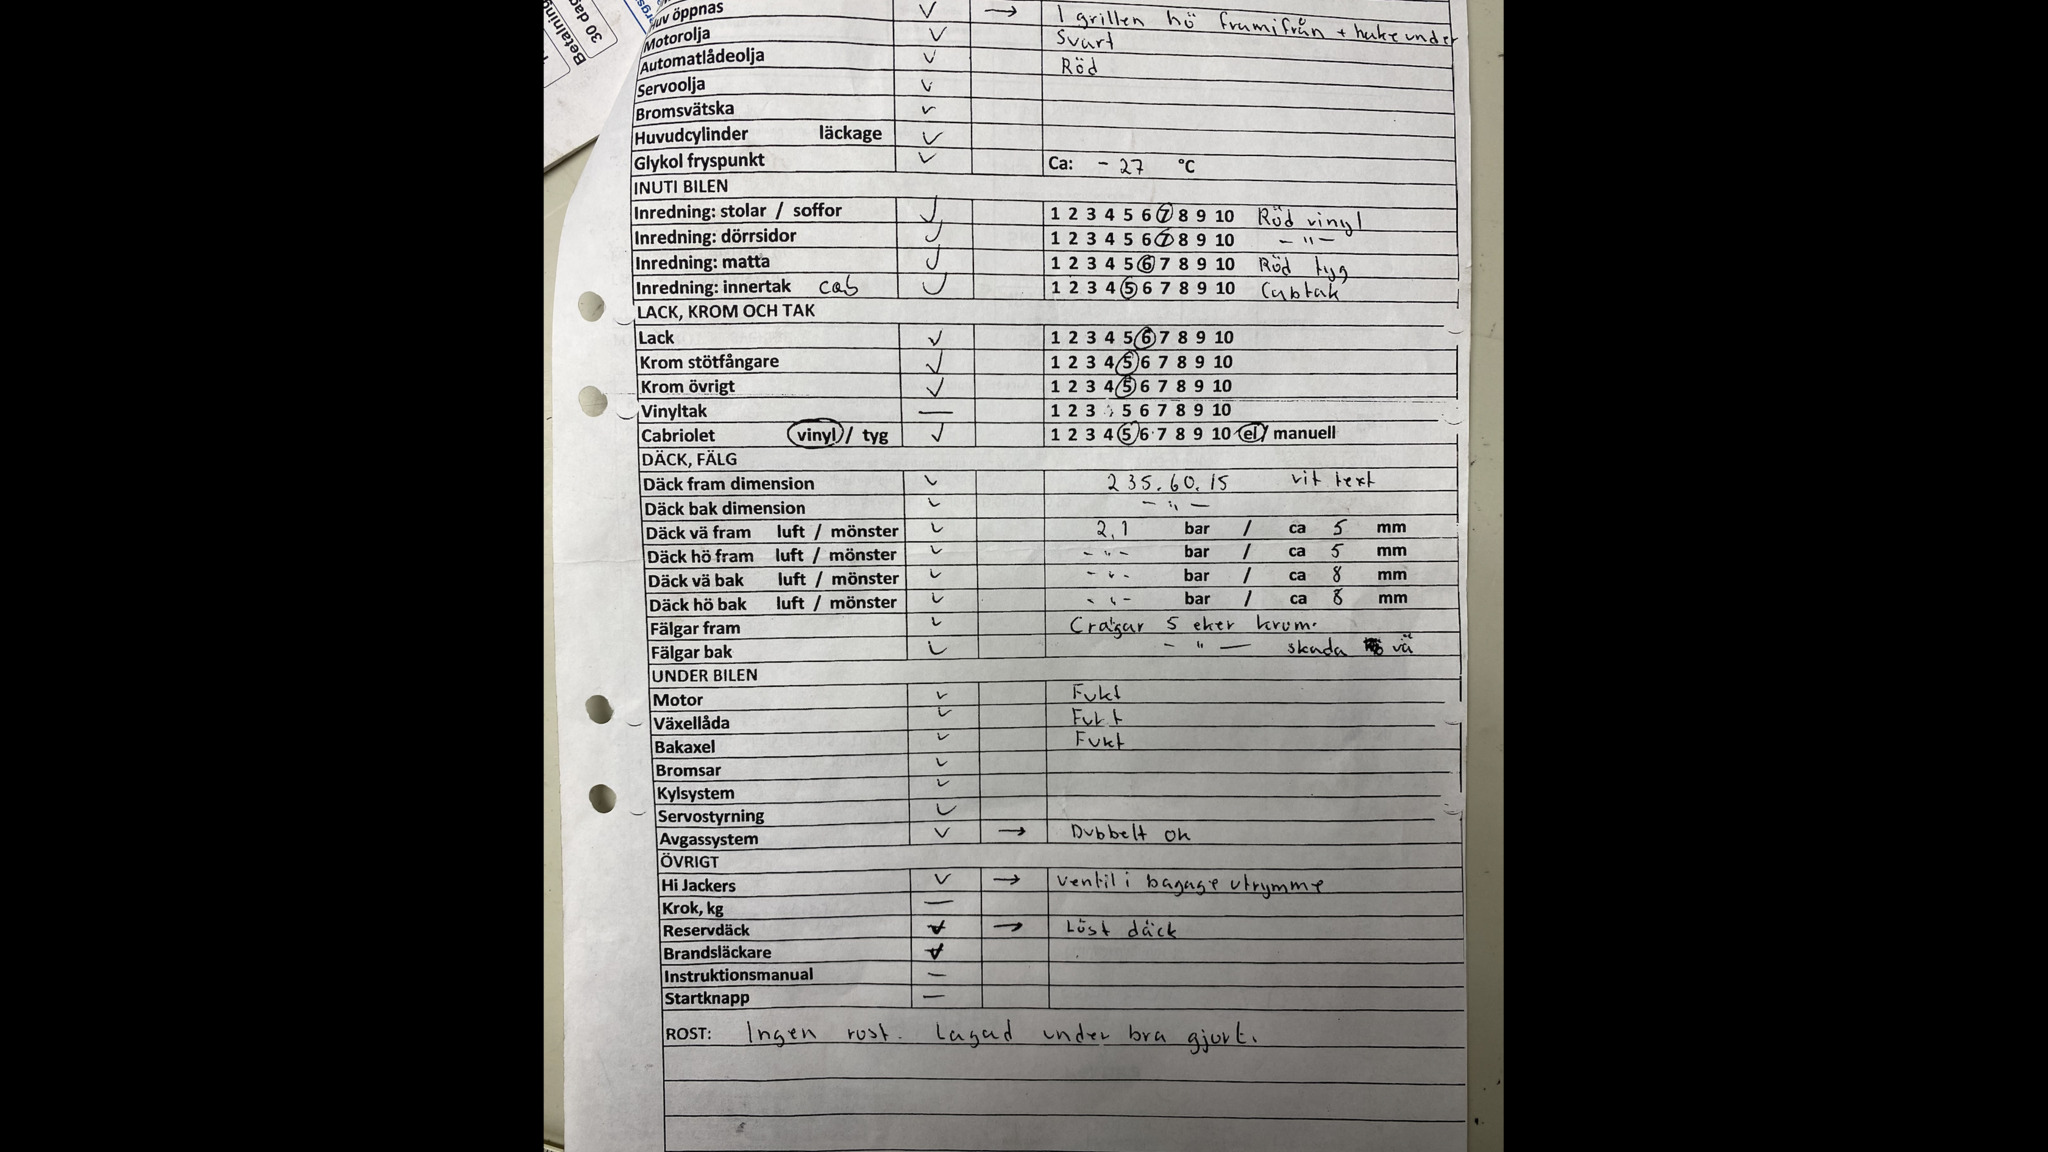 Betalning
30 dag
ergs
uv öppnas → I grillen hö framifrån + hake under
Motorolja Svart
Automatlådeolja Röd
Servoolja
Bromsvätska
Huvudcylinder läckage
Glykol fryspunkt Ca: - 27 °C
INUTI BILEN
Inredning: stolar / soffor 1 2 3 4 5 6 7 8 9 10 Röd vinyl
Inredning: dörrsidor 1 2 3 4 5 6 7 8 9 10 - " -
Inredning: matta 1 2 3 4 5 6 7 8 9 10 Röd tyg
Inredning: innertak cab 1 2 3 4 5 6 7 8 9 10 Cabtak
LACK, KROM OCH TAK
Lack 1 2 3 4 5 6 7 8 9 10
Krom stötfångare 1 2 3 4 5 6 7 8 9 10
Krom övrigt 1 2 3 4 5 6 7 8 9 10
Vinyltak — 1 2 3 5 6 7 8 9 10
Cabriolet vinyl / tyg 1 2 3 4 5 6 7 8 9 10 el / manuell
DÄCK, FÄLG
Däck fram dimension 235.60.15 vit text
Däck bak dimension - " -
Däck vä fram luft / mönster 2,1 bar / ca 5 mm
Däck hö fram luft / mönster - " - bar / ca 5 mm
Däck vä bak luft / mönster - " - bar / ca 8 mm
Däck hö bak luft / mönster - " - bar / ca 8 mm
Fälgar fram Cragar 5 eker krom.
Fälgar bak - " - skada vä
UNDER BILEN
Motor Fukt
Växellåda Fukt
Bakaxel Fukt
Bromsar
Kylsystem
Servostyrning
Avgassystem → Dubbelt ok
ÖVRIGT
Hi Jackers → ventil i bagage utrymme
Krok, kg —
Reservdäck → Löst däck
Brandsläckare
Instruktionsmanual —
Startknapp —
ROST: Ingen rost. Lagad under bra gjort.